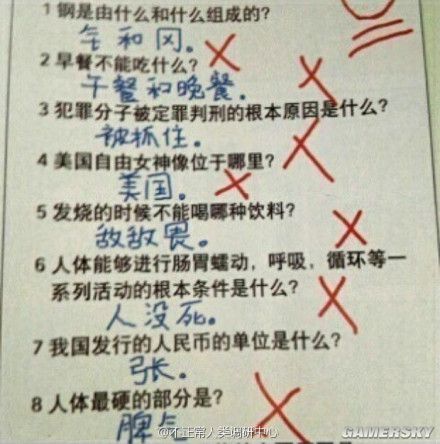 1 钢是由什么和什么组成的?
钅和冈。
2 早餐不能吃什么?
午餐和晚餐。
3 犯罪分子被定罪判刑的根本原因是什么?
被抓住。
4 美国自由女神像位于哪里?
美国。
5 发烧的时候不能喝哪种饮料?
敌敌畏。
6 人体能够进行肠胃蠕动，呼吸，循环等一
系列活动的根本条件是什么?
人没死。
7 我国发行的人民币的单位是什么?
张。
8 人体最硬的部分是?
脾气
@不正常人类调研中心
GAMERSKY